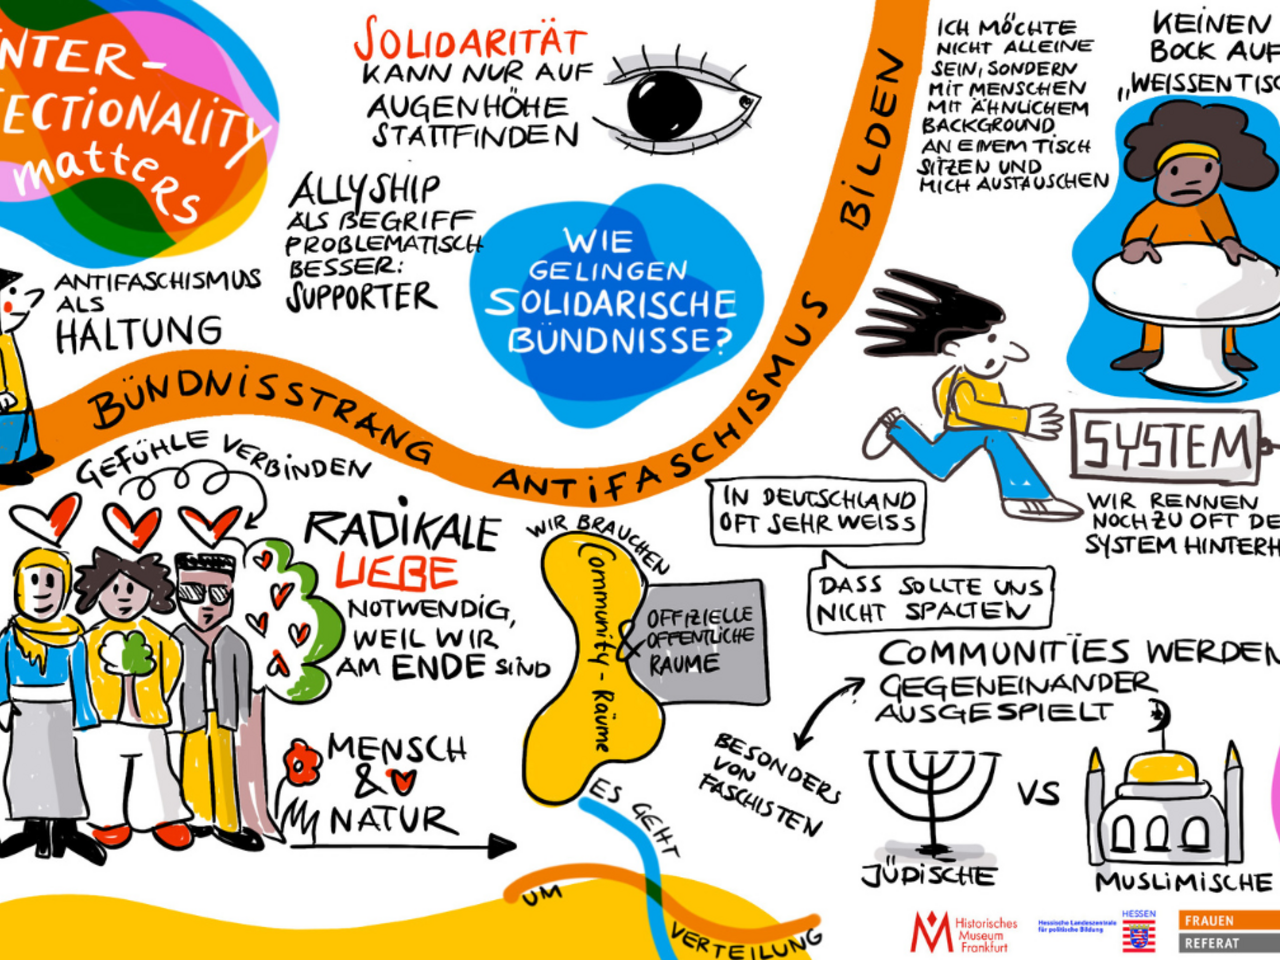 INTER-
SECTIONALITY
matters
SOLIDARITÄT
KANN NUR AUF
AUGENHÖHE
STATTFINDEN
ALLYSHIP
ALS BEGRIFF
PROBLEMATISCH
BESSER:
SUPPORTER
WIE
GELINGEN
SOLIDARISCHE
BÜNDNISSE?
ANTIFASCHISMUS
ALS
HALTUNG
BÜNDNISSTRANG
ANTIFASCHISMUS
BILDEN
ICH MÖCHTE
NICHT ALLEINE
SEIN, SONDERN
MIT MENSCHEN
MIT ÄHNLICHEM
BACKGROUND
AN EINEM TISCH
SITZEN UND
MICH AUSTAUSCHEN
KEINEN
BOCK AUF
„WEISSEN TISC
SYSTEM
WIR RENNEN
NOCH ZU OFT DE
SYSTEM HINTERH
GEFÜHLE VERBINDEN
RADIKALE
LIEBE
NOTWENDIG,
WEIL WIR
AM ENDE SIND
MENSCH
&
NATUR
WIR BRAUCHEN
Community-Räume
&
OFFIZIELLE
ÖFFENTLICHE
RÄUME
IN DEUTSCHLAND
OFT SEHR WEISS
DASS SOLLTE UNS
NICHT SPALTEN
COMMUNITIES WERDEN
GEGENEINANDER
AUSGESPIELT
BESONDERS
VON
FASCHISTEN
VS
JÜDISCHE
MUSLIMISCHE
ES GEHT
UM
VERTEILUNG
Historisches
Museum
Frankfurt
Hessische Landeszentrale
für politische Bildung
HESSEN
FRAUEN
REFERAT